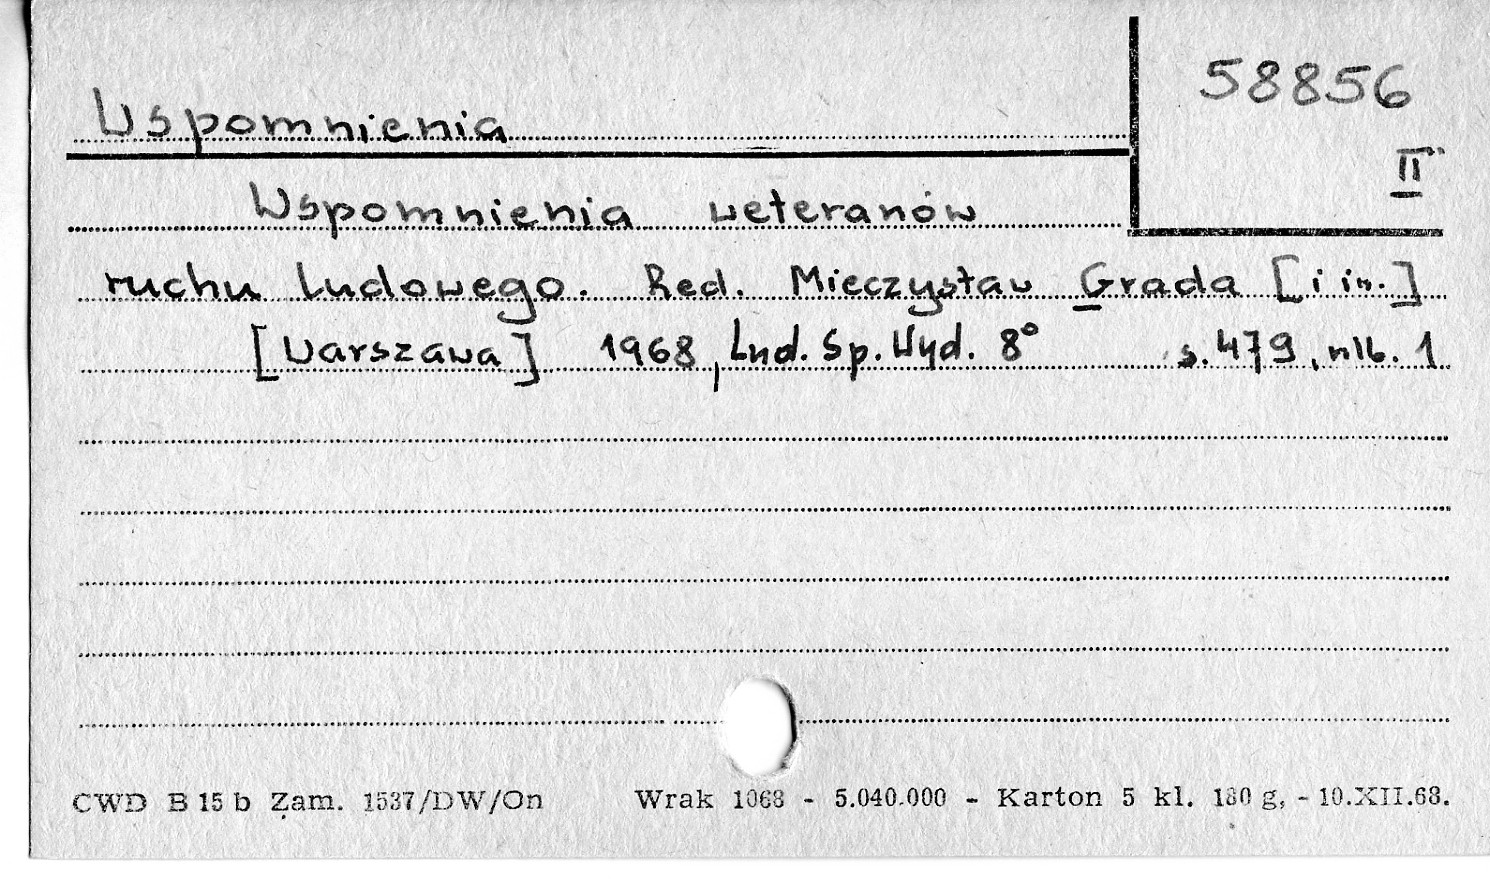 Wspomnienia
58856
II
Wspomnienia weteranów
ruchu ludowego. Red. Mieczysław Grada [i in.]
[Warszawa] 1968, Lud. Sp. Wyd. 8° s. 479, nlb. 1
CWD B 15 b Zam. 1537/DW/On Wrak 1068 - 5.040.000 - Karton 5 kl. 180 g, - 10.XII.68.